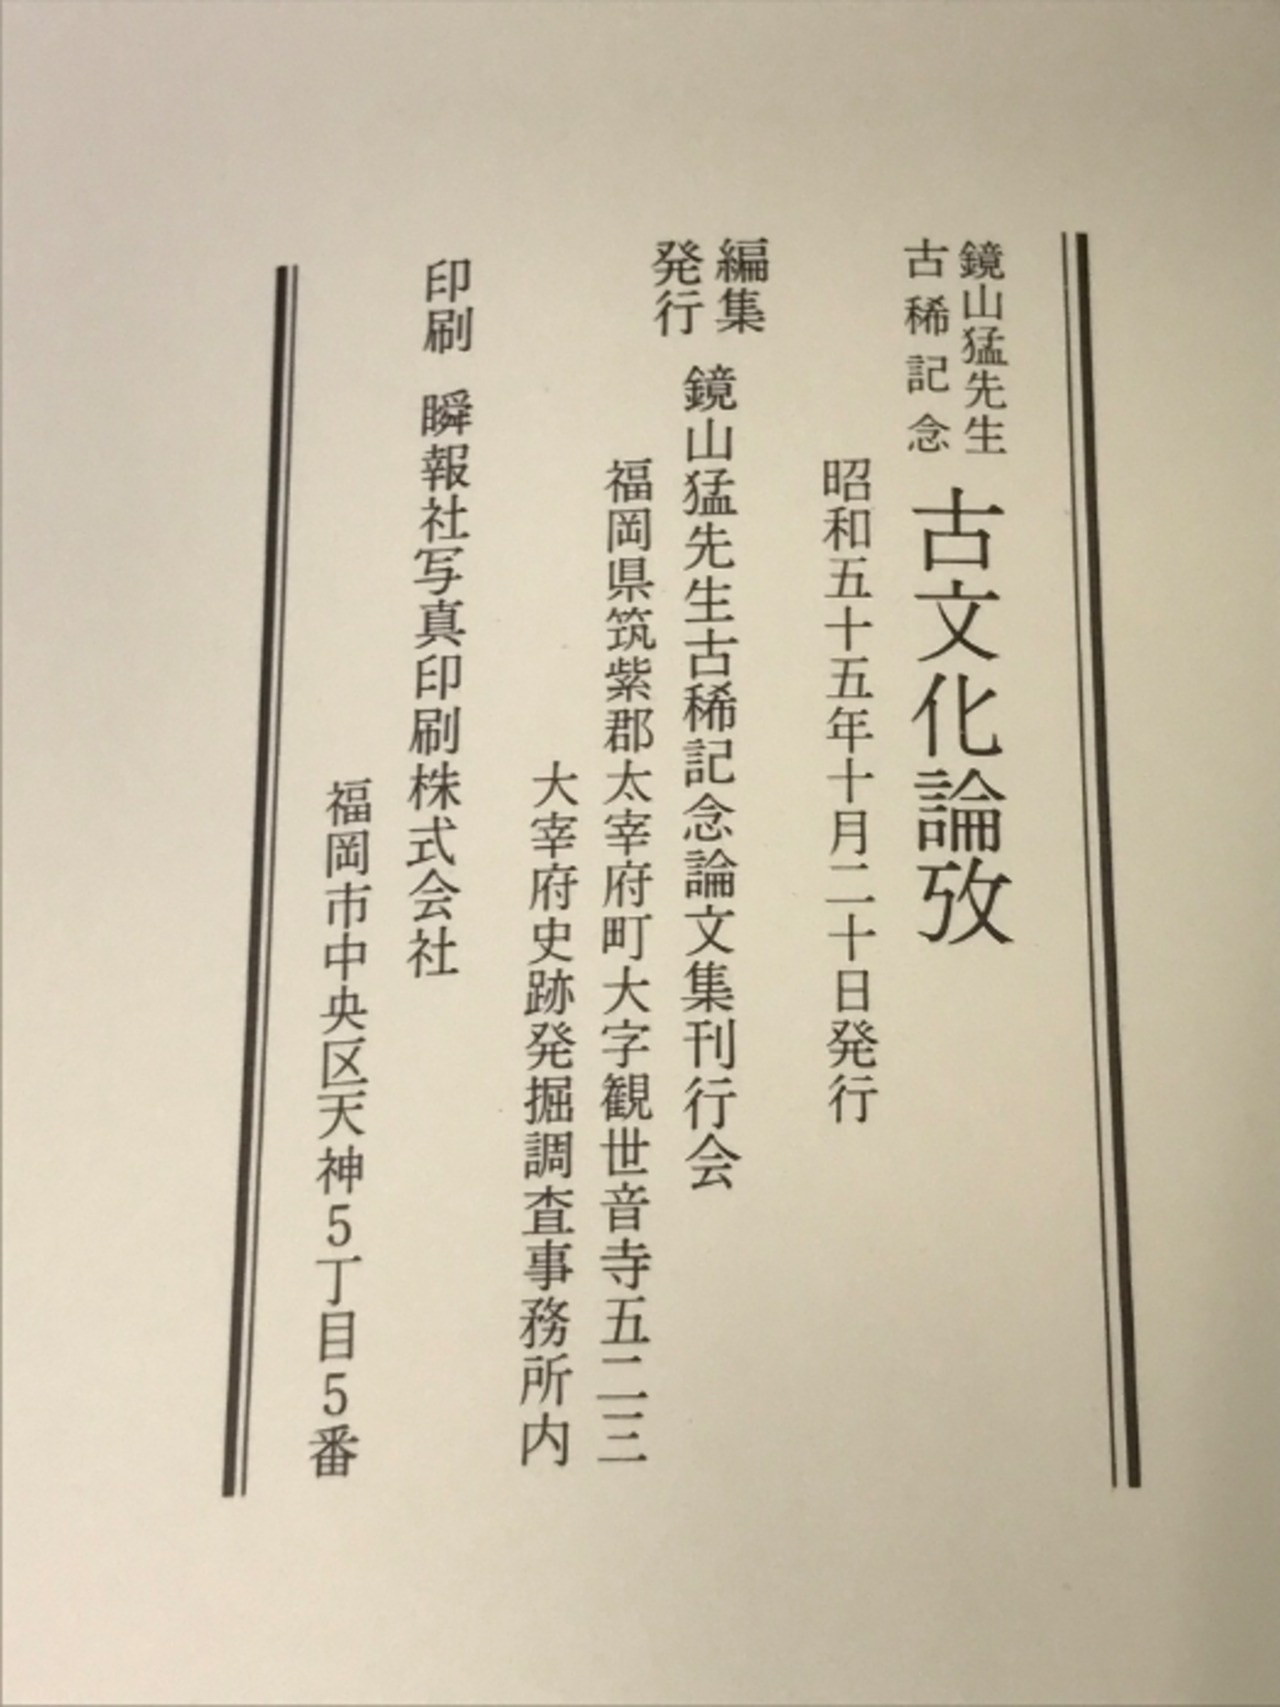 鏡山猛先生
古稀記念
古文化論攷
昭和五十五年十月二十日発行
編集
発行
鏡山猛先生古稀記念論文集刊行会
福岡県筑紫郡太宰府町大字観世音寺五二三
大宰府史跡発掘調査事務所内
印刷 瞬報社写真印刷株式会社
福岡市中央区天神5丁目5番